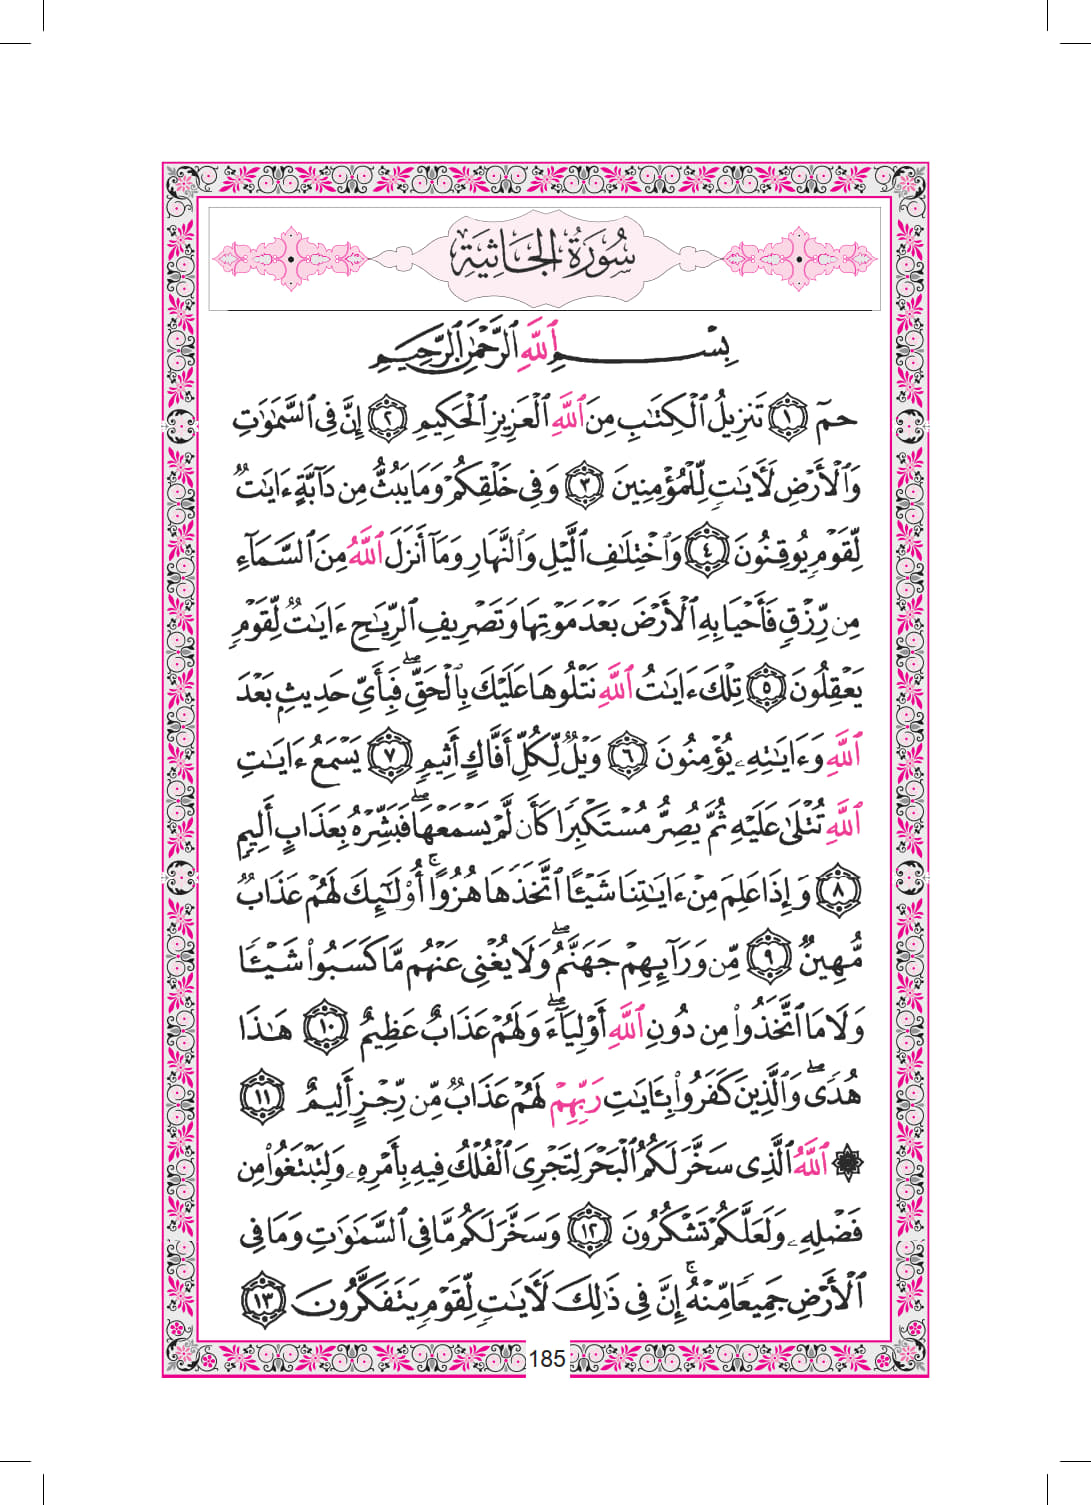 سُورَةُ الجَاثِيَةِ
بِسْمِ ٱللَّهِ ٱلرَّحْمَٰنِ ٱلرَّحِيمِ
حمٓ ١ تَنزِيلُ ٱلْكِتَٰبِ مِنَ ٱللَّهِ ٱلْعَزِيزِ ٱلْحَكِيمِ ٢ إِنَّ فِى ٱلسَّمَٰوَٰتِ
وَٱلْأَرْضِ لَءَايَٰتٍ لِّلْمُؤْمِنِينَ ٣ وَفِى خَلْقِكُمْ وَمَا يَبُثُّ مِن دَآبَّةٍ ءَايَٰتٌ
لِّقَوْمٍ يُوقِنُونَ ٤ وَٱخْتِلَٰفِ ٱلَّيْلِ وَٱلنَّهَارِ وَمَآ أَنزَلَ ٱللَّهُ مِنَ ٱلسَّمَآءِ
مِن رِّزْقٍ فَأَحْيَا بِهِ ٱلْأَرْضَ بَعْدَ مَوْتِهَا وَتَصْرِيفِ ٱلرِّيَٰحِ ءَايَٰتٌ لِّقَوْمٍ
يَعْقِلُونَ ٥ تِلْكَ ءَايَٰتُ ٱللَّهِ نَتْلُوهَا عَلَيْكَ بِٱلْحَقِّ ۖ فَبِأَىِّ حَدِيثٍۭ بَعْدَ
ٱللَّهِ وَءَايَٰتِهِۦ يُؤْمِنُونَ ٦ وَيْلٌ لِّكُلِّ أَفَّاكٍ أَثِيمٍ ٧ يَسْمَعُ ءَايَٰتِ
ٱللَّهِ تُتْلَىٰ عَلَيْهِ ثُمَّ يُصِرُّ مُسْتَكْبِرًا كَأَن لَّمْ يَسْمَعْهَا ۖ فَبَشِّرْهُ بِعَذَابٍ أَلِيمٍ
٨ وَإِذَا عَلِمَ مِنْ ءَايَٰتِنَا شَيْـًٔا ٱتَّخَذَهَا هُزُوًا ۚ أُو۟لَٰٓئِكَ لَهُمْ عَذَابٌ
مُّهِينٌ ٩ مِّن وَرَآئِهِمْ جَهَنَّمُ ۖ وَلَا يُغْنِى عَنْهُم مَّا كَسَبُوا۟ شَيْـًٔا
وَلَا مَا ٱتَّخَذُوا۟ مِن دُونِ ٱللَّهِ أَوْلِيَآءَ ۖ وَلَهُمْ عَذَابٌ عَظِيمٌ ١٠ هَٰذَا
هُدًى ۖ وَٱلَّذِينَ كَفَرُوا۟ بِـَٔايَٰتِ رَبِّهِمْ لَهُمْ عَذَابٌ مِّن رِّجْزٍ أَلِيمٌ ١١
۞ ٱللَّهُ ٱلَّذِى سَخَّرَ لَكُمُ ٱلْبَحْرَ لِتَجْرِىَ ٱلْفُلْكُ فِيهِ بِأَمْرِهِۦ وَلِتَبْتَغُوا۟ مِن
فَضْلِهِۦ وَلَعَلَّكُمْ تَشْكُرُونَ ١٢ وَسَخَّرَ لَكُم مَّا فِى ٱلسَّمَٰوَٰتِ وَمَا فِى
ٱلْأَرْضِ جَمِيعًا مِّنْهُ ۚ إِنَّ فِى ذَٰلِكَ لَءَايَٰتٍ لِّقَوْمٍ يَتَفَكَّرُونَ ١٣
185